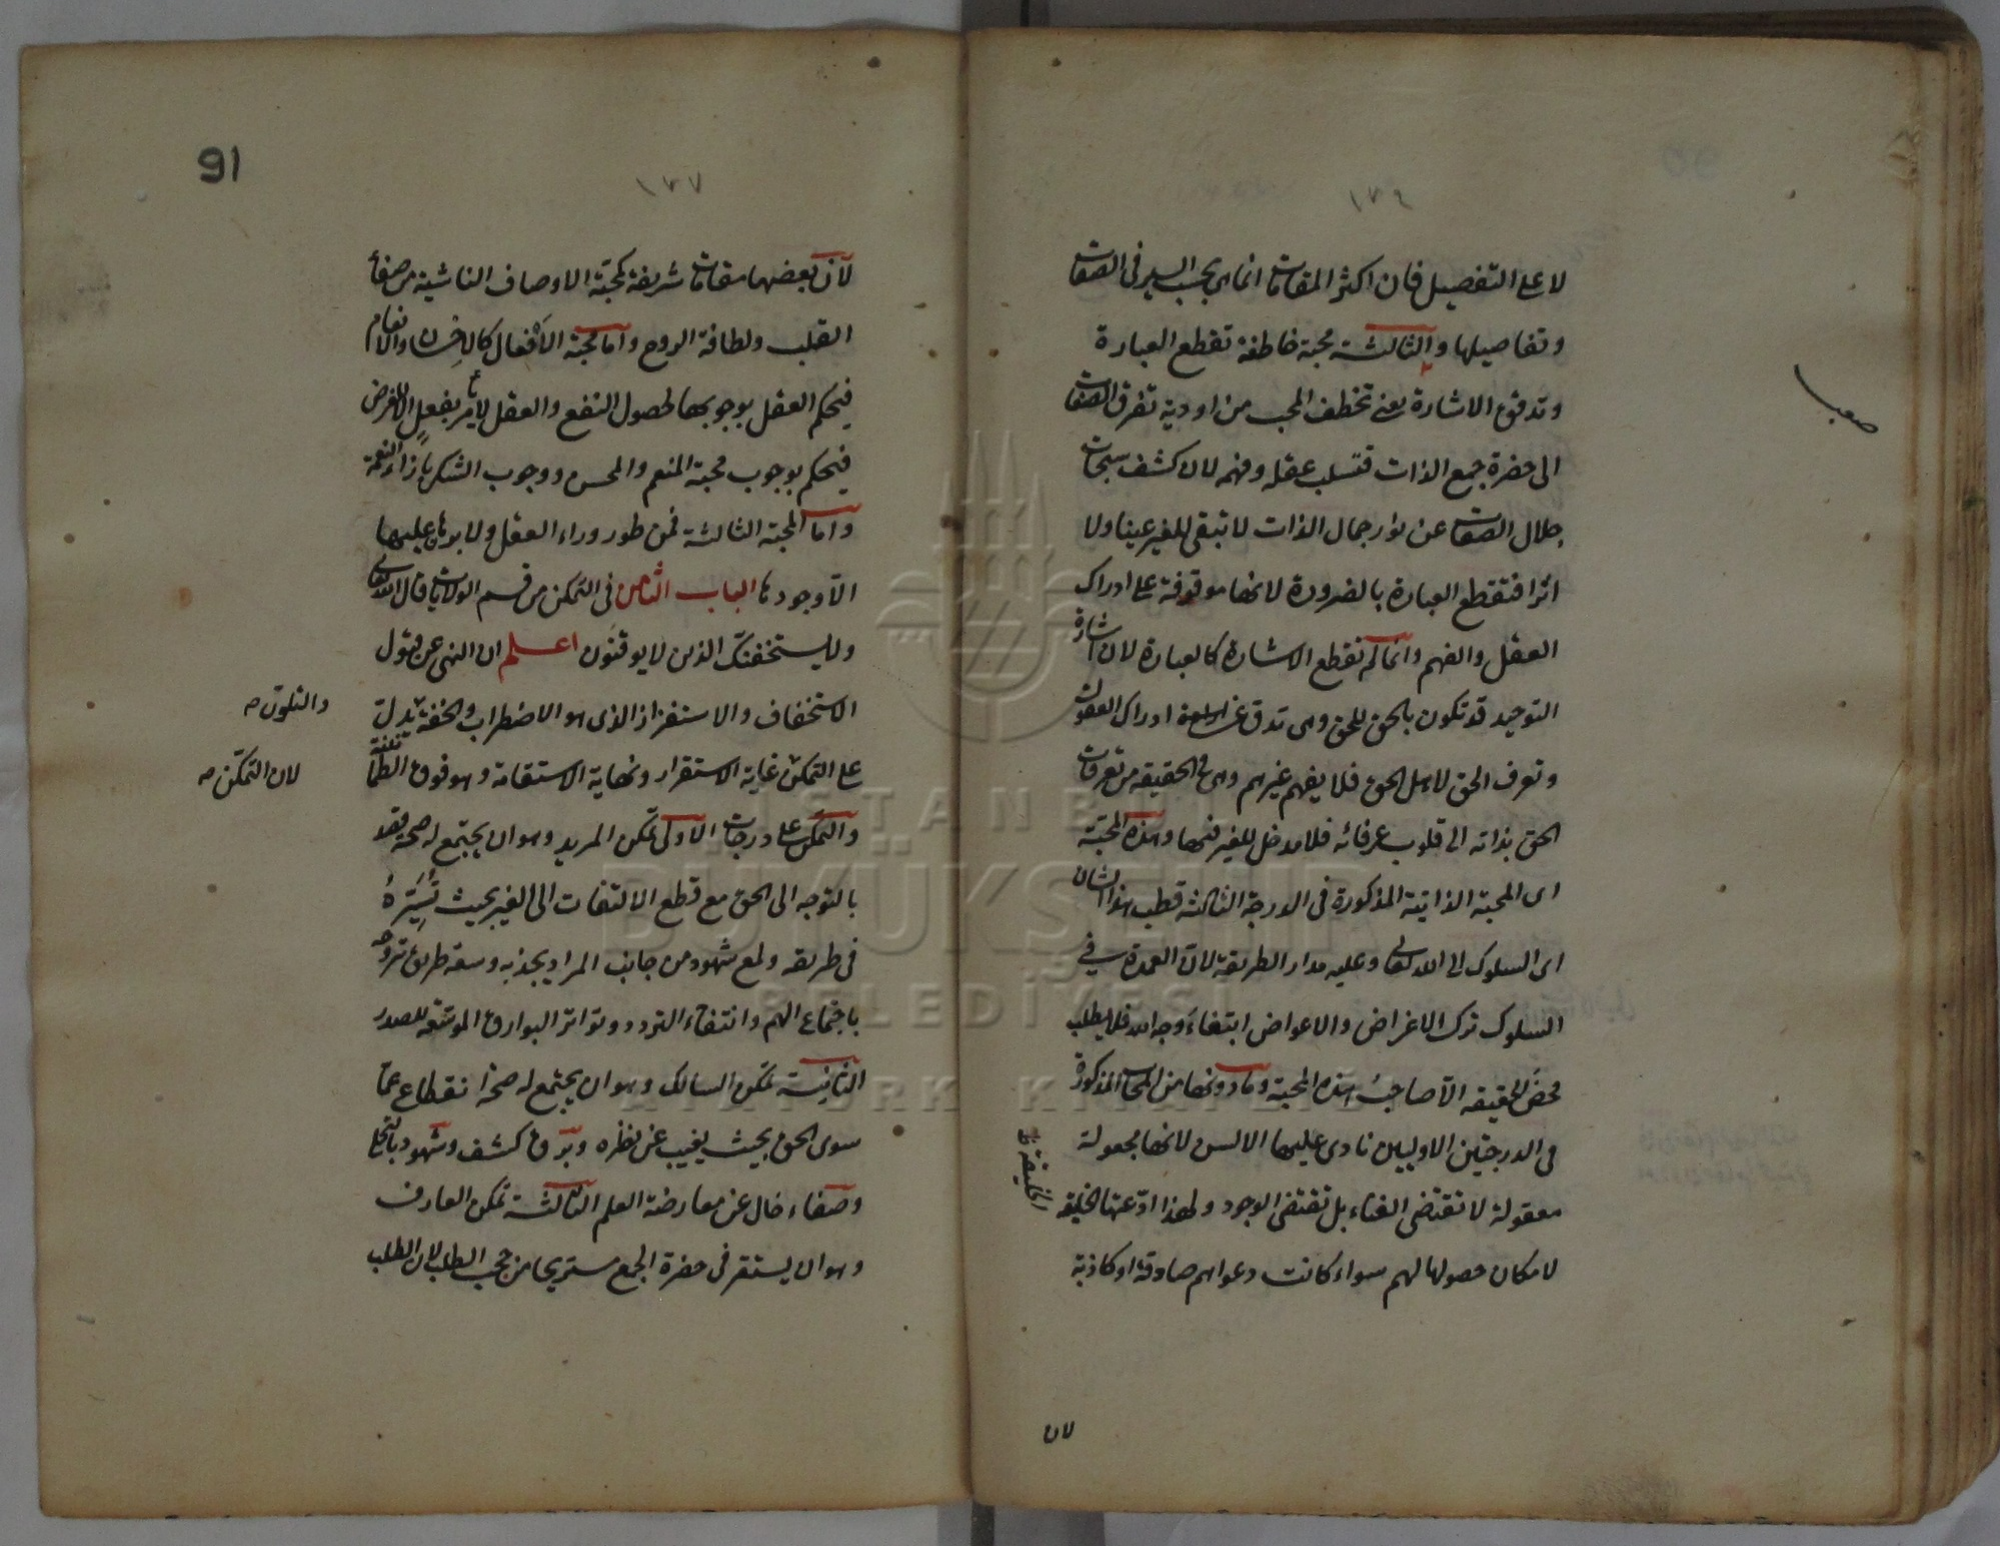 ١٣٦
لا على التفصيل فان اكثر المقامات انما هى بحسب السير فى الصفات
وتفاصيلها والثالثة محبة خاطفة تقطع العبارة
وتدقق الاشارة يعنى تخطف المحب من اودية تفرق الصفات
الى حضرة جمع الذات فتسلب عقله وفهمه لان كشف سبحات
جلال الصفات عن نور جمال الذات لا تبقى للغير عينا ولا
اثرا فتقطع العبارة بالضرورة لانها موقوفة على ادراك
العقل والفهم وانما لم تقطع الاشارة كالعبارة لان اشارة
التوحيد قد تكون بالحق للحق وهى تدق عن ادراك العقول
وتعرف الحق لاهل الحق فلا يفهم غيرهم وهى فى الحقيقة من تعرفات
الحق بذاته الى قلوب عرفائه فلا مدخل للغير فيها وهذه المحبة
اى المحبة الذاتية المذكورة فى الدرجة الثالثة قطب هذا الشان
اى السلوك الى الله تعالى وعليه مدار الطريقة لان العمدة فى
السلوك ترك الاغراض والاعواض ابتغاء وجه الله فلا يطلب
محض الحقيقة الا صاحب هذه المحبة وما دونها من المحاب المذكورة
فى الدرجتين الاوليين نادى عليها الالسن لانها مجعولة
معقولة لا تقتضى الفناء بل تقتضى الوجود ولهذا ادعتها الخليقة
لامكان حصولها لهم سواء كانت دعواهم صادقة او كاذبة
الخليقة
لان
صعب
91
١٣٧
لان بعضها مقامات شريفة كمحبة الاوصاف الناشية من صفاء
القلب ولطافة الروح واما محبة الافعال كالاحسان والانعام
فيحكم العقل بوجوبها لحصول النفع والعقل لا يأمر بفعل الا لغرض
فيحكم بوجوب محبة المنعم والمحسن ووجوب الشكر بازاء النعمة
واما المحبة الثالثة فمن طور وراء العقل ولا برهان عليها
الا وجودها الباب الثامن فى التمكن من قسم الولايات قال الله تعالى
ولا يستخفنك الذين لا يوقنون اعلم ان النهى عن قبول
الاستخفاف والاستفزاز الذى هو الاضطراب والخفة يدل
على التمكن غاية الاستقرار ونهاية الاستقامة وهو فوق الطمأنينة
والتمكن على درجات الاولى تمكن المريد وهو ان يجتمع له صحة قصد
بالتوجه الى الحق مع قطع الالتفات الى الغير بحيث تسيره
فى طريقه ولمع شهود من جانب المراد يجذبه وسعة طريق تروحه
باجتماع الهم وانتفاء التردد وتواتر البوارق الموسعة للصدر
الثانية تمكن السالك وهو ان يجتمع له صحة انقطاع عما
سوى الحق بحيث يغيب عن نظره وبرق كشف وشهود بالتجلى
وصفاء حال عن معارضة العلم الثالثة تمكن العارف
وهو ان يستقر فى حضرة الجمع مستريحا من حجب الطلب لان الطلب
والتلون صح
لان التمكن صح
İSTANBUL
BÜYÜKŞEHİR
BELEDİYESİ
ATATÜRK KİTAPLIĞI